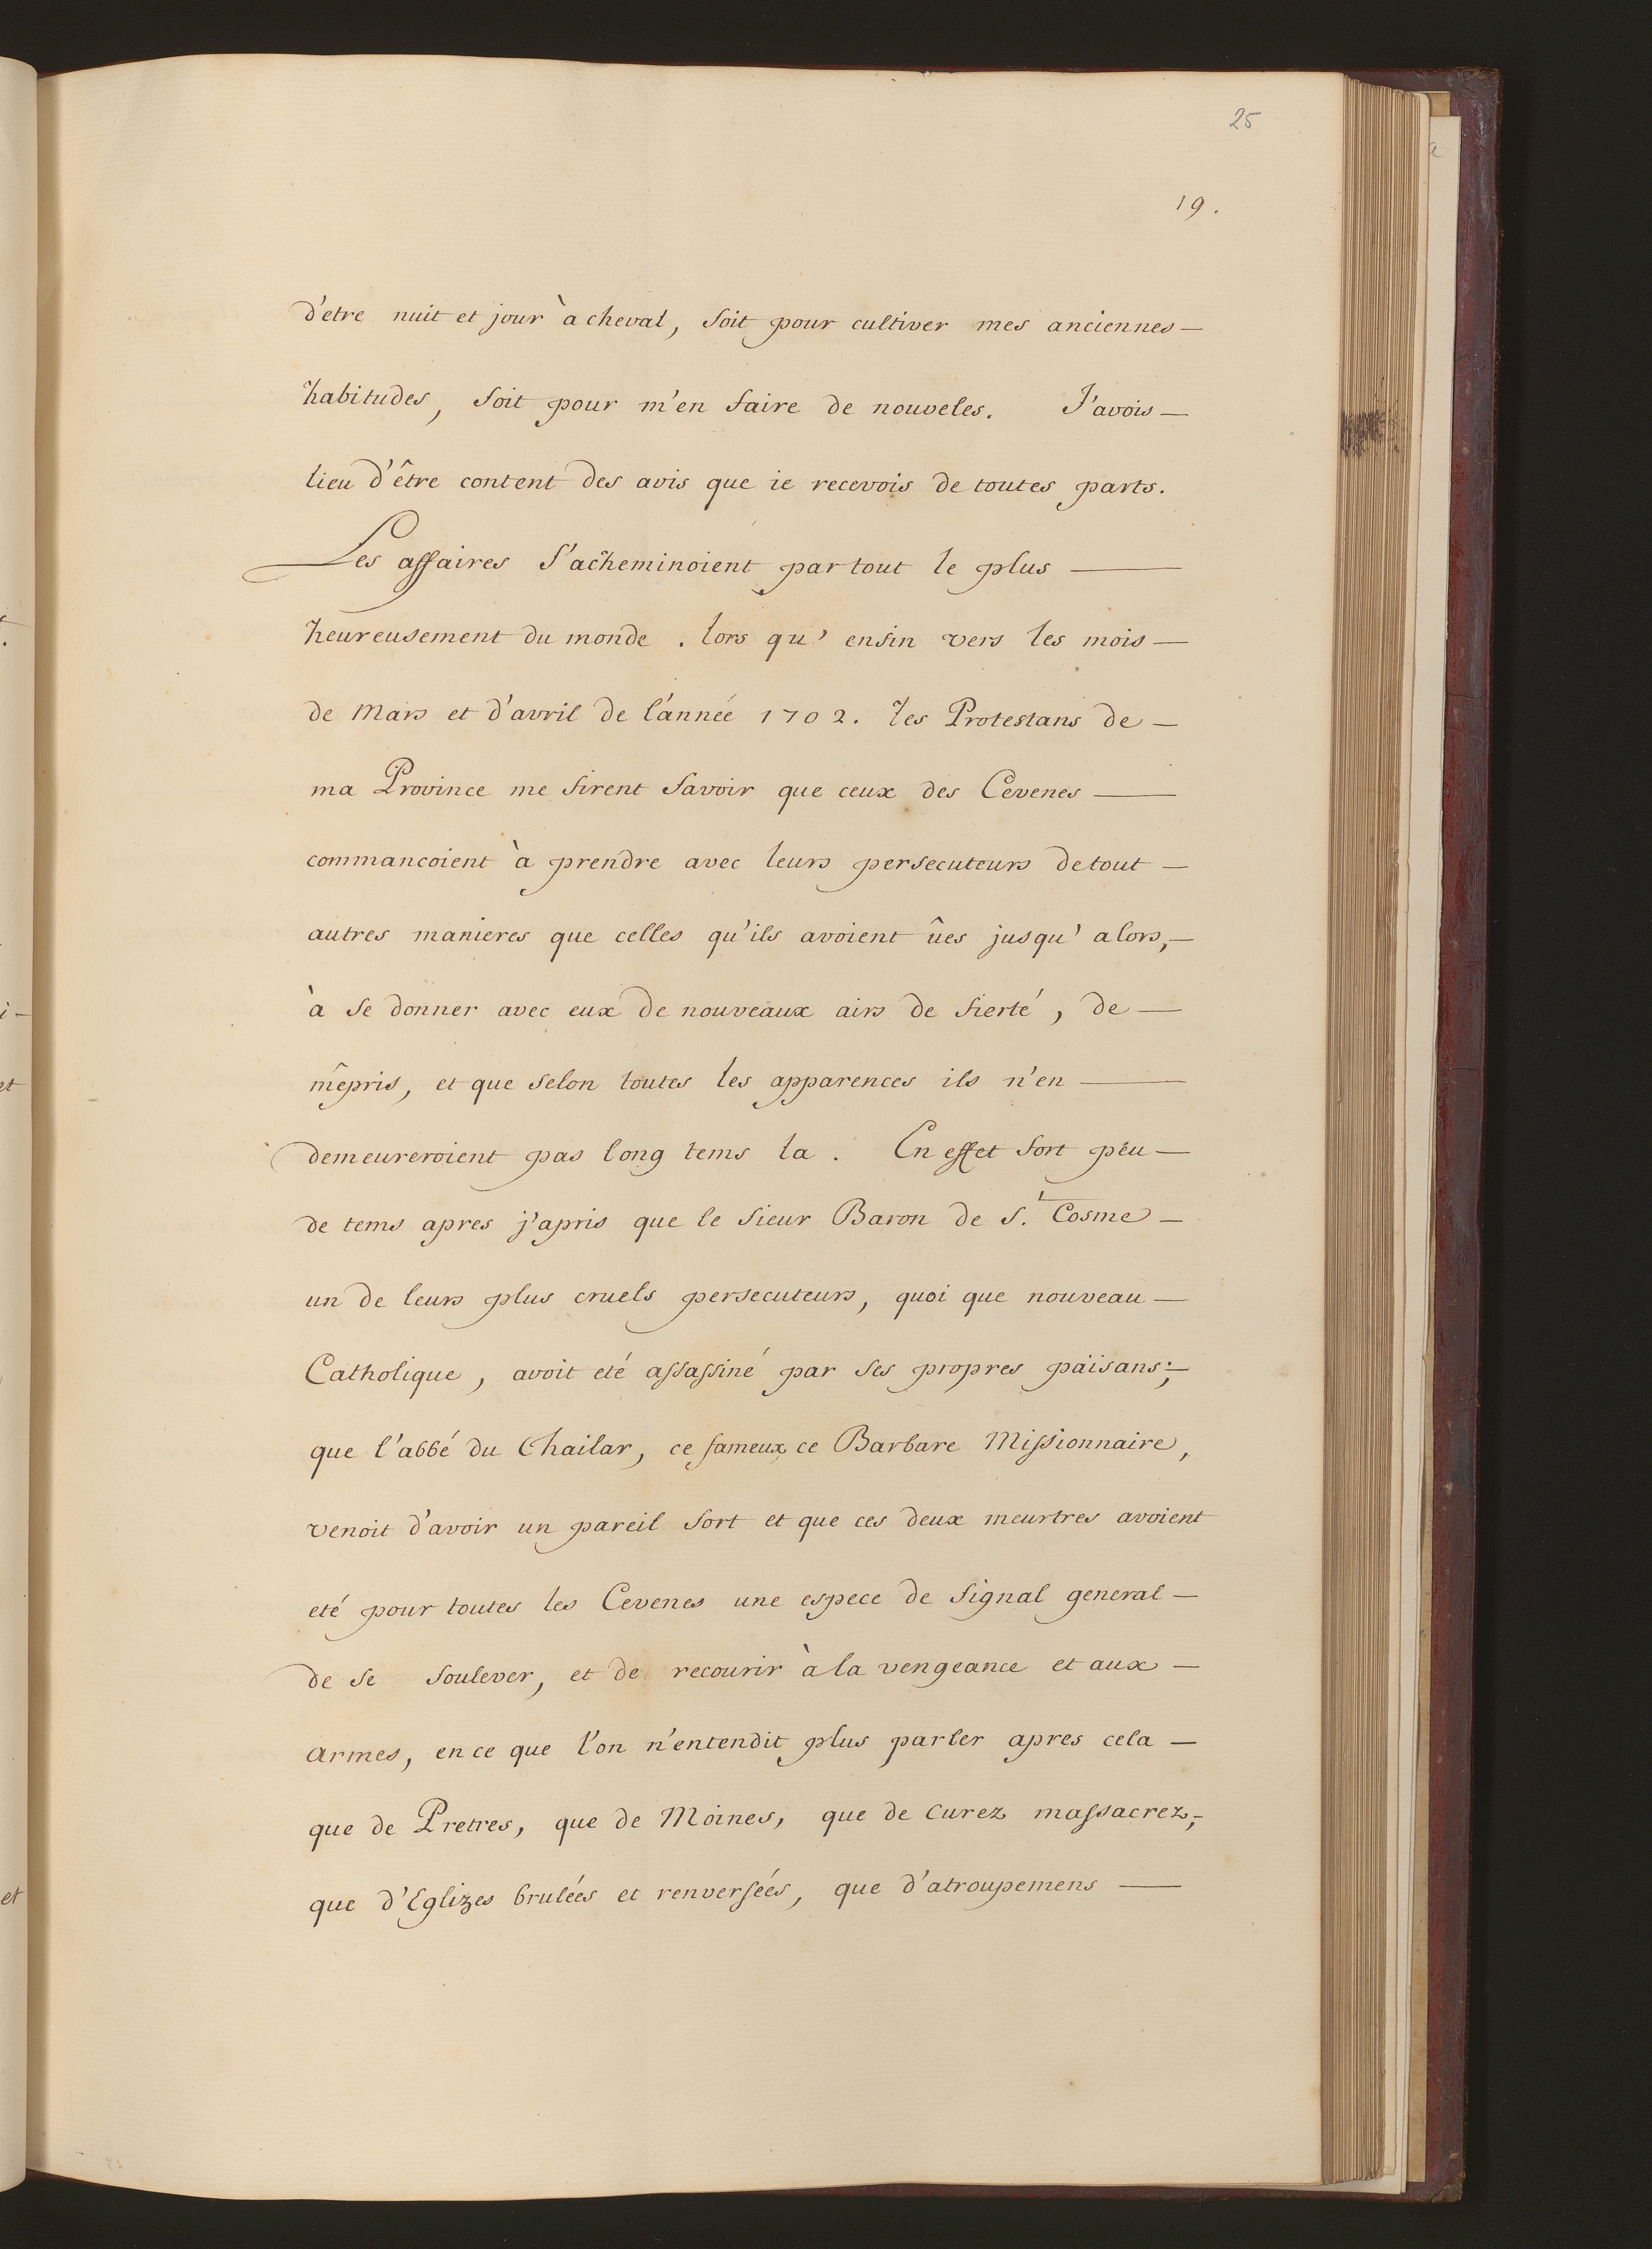 25
19.
d'etre nuit et jour à cheval, soit pour cultiver mes anciennes —
habitudes, soit pour m'en faire de nouveles. J'avois —
lieu d'être content des avis que ie recevois de toutes parts.
Les affaires s'acheminoient par tout le plus —
heureusement du monde . lors qu' enfin vers les mois —
de Mars et d'avril de l'année 1702. les Protestans de —
ma Province me firent savoir que ceux des Cevenes —
commancoient à prendre avec leurs persecuteurs de tout —
autres manieres que celles qu'ils avoient ûes jusqu' alors, —
à se donner avec eux de nouveaux airs de fierté, de —
mêpris, et que selon toutes les apparences ils n'en —
demeureroient pas long tems la . En effet fort peu —
de tems apres j'apris que le sieur Baron de S.t Cosme —
un de leurs plus cruels persecuteurs, quoi que nouveau —
Catholique, avoit eté assassiné par ses propres païsans; —
que l'abbé du Chailar, ce fameux ce Barbare Missionnaire,
venoit d'avoir un pareil sort et que ces deux meurtres avoient
eté pour toutes les Cevenes une espece de signal general —
de se soulever, et de recourir à la vengeance et aux —
armes, en ce que l'on n'entendit plus parler apres cela —
que de Pretres, que de Moines, que de Curez massacrez, —
que d'Eglizes brulées et renversées, que d'atroupemens —